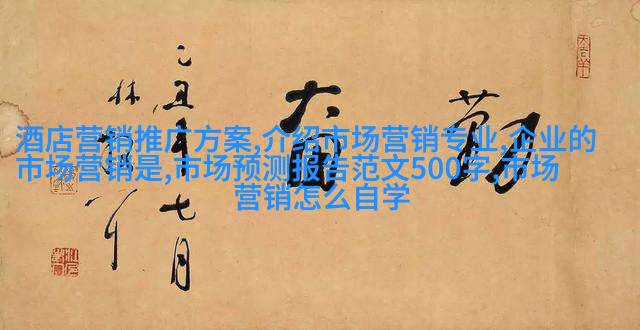 酒店营销推广方案,介绍市场营销专业,企业的
市场营销是,市场预测报告范文500字,市场
营销怎么自学
勤奮
乙丑年七月
林散